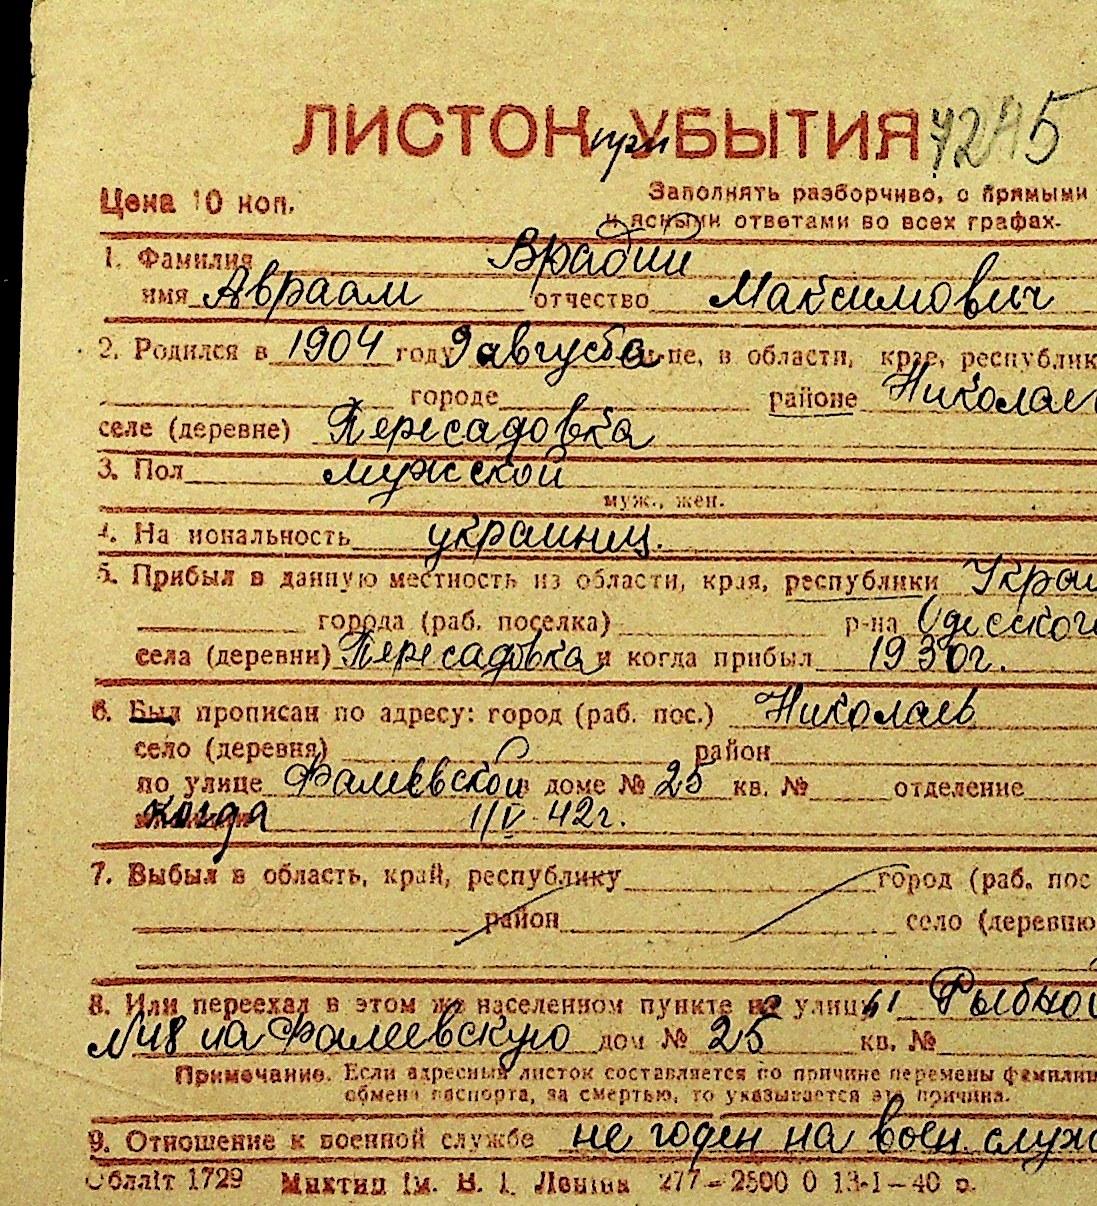 ЛИСТОК при УБЫТИЯ 7245
Цена 10 коп.
Заполнять разборчиво, с прямыми
и ясными ответами во всех графах.
1. Фамилия Врадий
имя Авраам отчество Максимович
2. Родился в 1904 году 9 августа м-це, в области, крае, республик
городе районе Николаев
селе (деревне) Пересадовка
3. Пол мужской
муж., жен.
4. Национальность украинец.
5. Прибыл в данную местность из области, края, республики Украи
города (раб. поселка) р-на Одесского
села (деревни) Пересадовка и когда прибыл 1930г.
6. Был прописан по адресу: город (раб. пос.) Николаев
село (деревня) район
по улице Фалеевской в доме № 25 кв. № отделение
когда 1/V 42г.
7. Выбыл в область, край, республику город (раб. пос
район село (деревню
8. Или переехал в этом же населенном пункте на улицу Рыбной
№48 на Фалеевскую дом № 25 кв. №
Примечание. Если адресный листок составляется по причине перемены фамилии
обмена паспорта, за смертью, то указывается эта причина.
9. Отношение к военной службе не годен на воен. служ
Обллiт 1729 Миктип iм. В. I. Ленiна 277–2500 0 13-I–40 р.